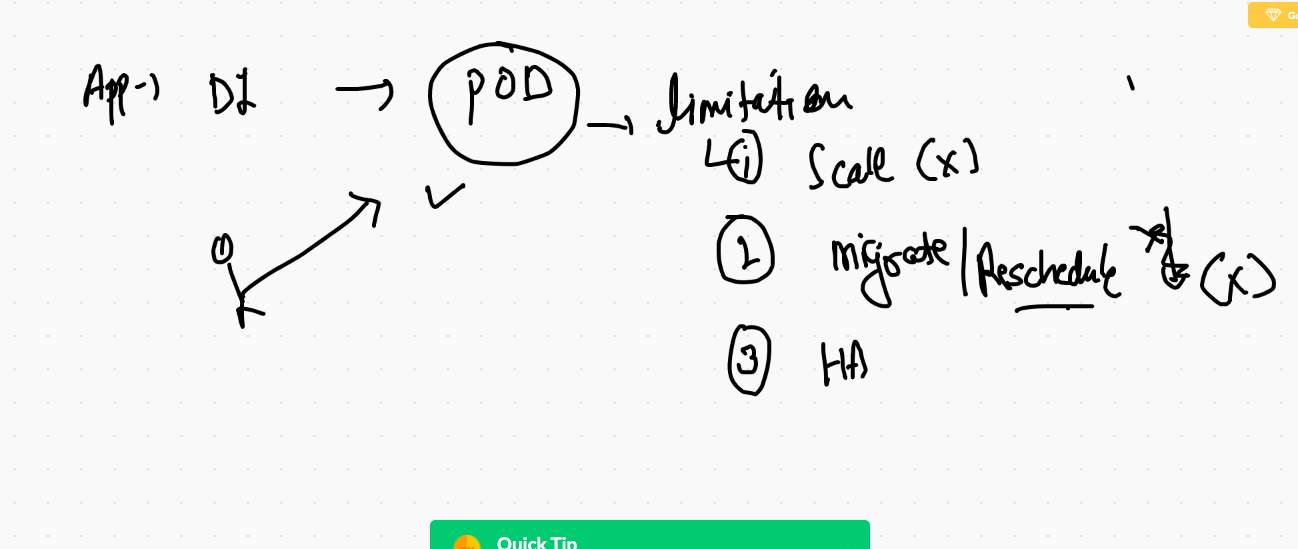 App → DI → POD → limitation
1 Scale (x)
2 migrate / Reschedule (x)
3 HA
Go
Quick Tip